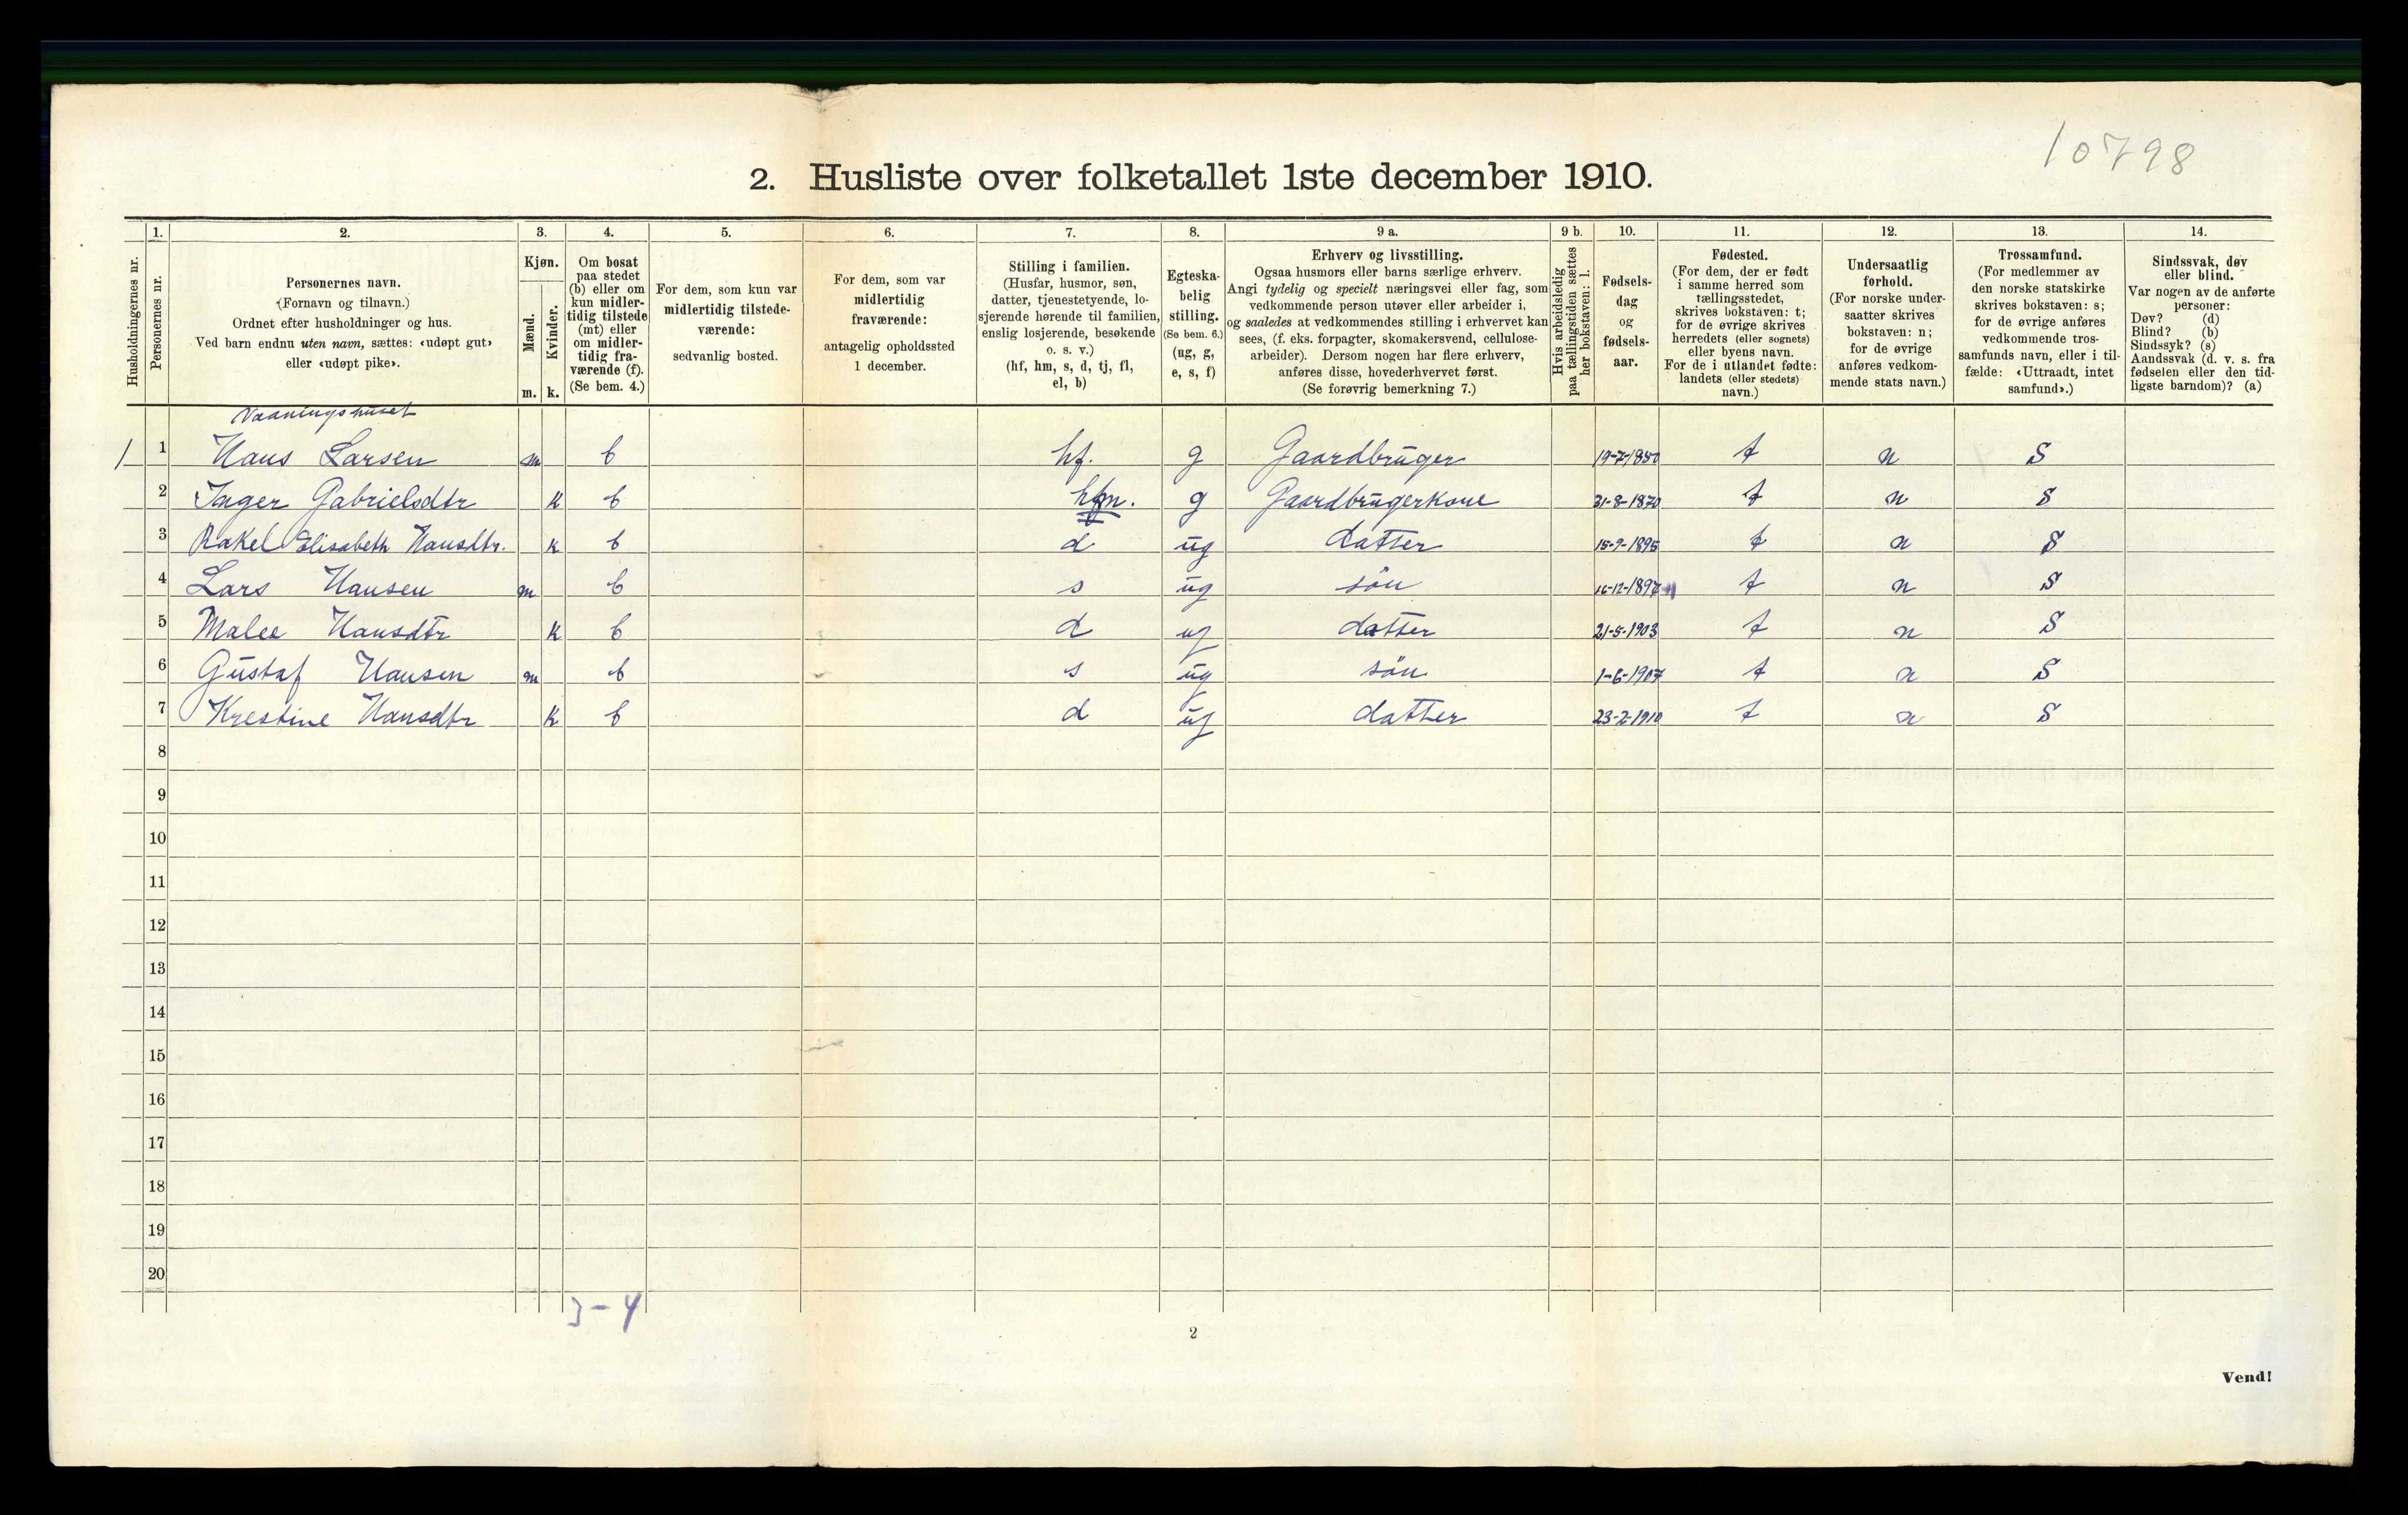 10798
2. Husliste over folketallet 1ste december 1910.
Husholdningernes nr.
1. Personernes nr.
2. Personernes navn. (Fornavn og tilnavn.) Ordnet efter husholdninger og hus. Ved barn endnu uten navn, sættes: «udøpt gut» eller «udøpt pike».
3. Kjøn. Mænd. m. Kvinder. k.
4. Om bosat paa stedet (b) eller om kun midlertidig tilstede (mt) eller om midlertidig fraværende (f). (Se bem. 4.)
5. For dem, som kun var midlertidig tilstedeværende: sedvanlig bosted.
6. For dem, som var midlertidig fraværende: antagelig opholdssted 1 december.
7. Stilling i familien. (Husfar, husmor, søn, datter, tjenestetyende, losjerende hørende til familien, enslig losjerende, besøkende o. s. v.) (hf, hm, s, d, tj, fl, el, b)
8. Egteskabelig stilling. (Se bem. 6.) (ug, g, e, s, f)
9 a. Erhverv og livsstilling. Ogsaa husmors eller barns særlige erhverv. Angi tydelig og specielt næringsvei eller fag, som vedkommende person utøver eller arbeider i, og saaledes at vedkommendes stilling i erhvervet kan sees, (f. eks. forpagter, skomakersvend, cellulosearbeider). Dersom nogen har flere erhverv, anføres disse, hovederhvervet først. (Se forøvrig bemerkning 7.)
9 b. Hvis arbeidsledig paa tællingstiden sættes her bokstaven: l.
10. Fødselsdag og fødselsaar.
11. Fødested. (For dem, der er født i samme herred som tællingsstedet, skrives bokstaven: t; for de øvrige skrives herredets (eller sognets) eller byens navn. For de i utlandet fødte: landets (eller stedets) navn.)
12. Undersaatlig forhold. (For norske undersaatter skrives bokstaven: n; for de øvrige anføres vedkommende stats navn.)
13. Trossamfund. (For medlemmer av den norske statskirke skrives bokstaven: s; for de øvrige anføres vedkommende trossamfunds navn, eller i tilfælde: «Uttraadt, intet samfund».)
14. Sindssvak, døv eller blind. Var nogen av de anførte personer: Døv? (d) Blind? (b) Sindssyk? (s) Aandssvak (d. v. s. fra fødselen eller den tidligste barndom)? (a)
Vaaningshuset
1 1 Hans Larsen m b hf. g Gaardbruger 19-7-1850 t n S
2 Inger Gabrielsdtr k b hfm. g Gaardbrugerkone 31-8-1870 t n S
3 Rakel Elisabeth Hansdtr. k b d ug datter 15-9-1895 t n S
4 Lars Hansen m b s ug søn 16-12-1897 t n S
5 Malee Hansdtr k b d ug datter 21-5-1903 t n S
6 Gustaf Hansen m b s ug søn 1-6-1907 t n S
7 Krestine Hansdtr k b d ug datter 23-2-1910 t n S
8
9
10
11
12
13
14
15
16
17
18
19
20
3-4
2
Vend!